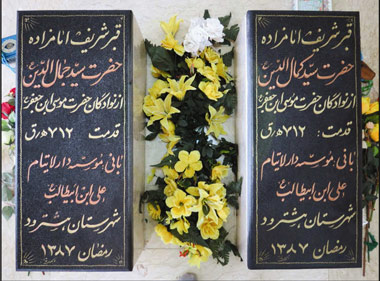 قبر شریف امامزاده
حضرت سید کمال الدین
از نوادگان حضرت موسی ابن جعفر
قدمت : ۷۱۲ ه‍ ق
بانی موسسه دارالایتام
علی ابن ابیطالب
شهرستان هشترود
رمضان ۱۳۸۷
قبر شریف امامزاده
حضرت سید جمال الدین
از نوادگان حضرت موسی ابن جعفر
قدمت ۷۱۲ ه‍ ق
بانی موسسه دارالایتام
علی ابن ابیطالب
شهرستان هشترود
رمضان ۱۳۸۷